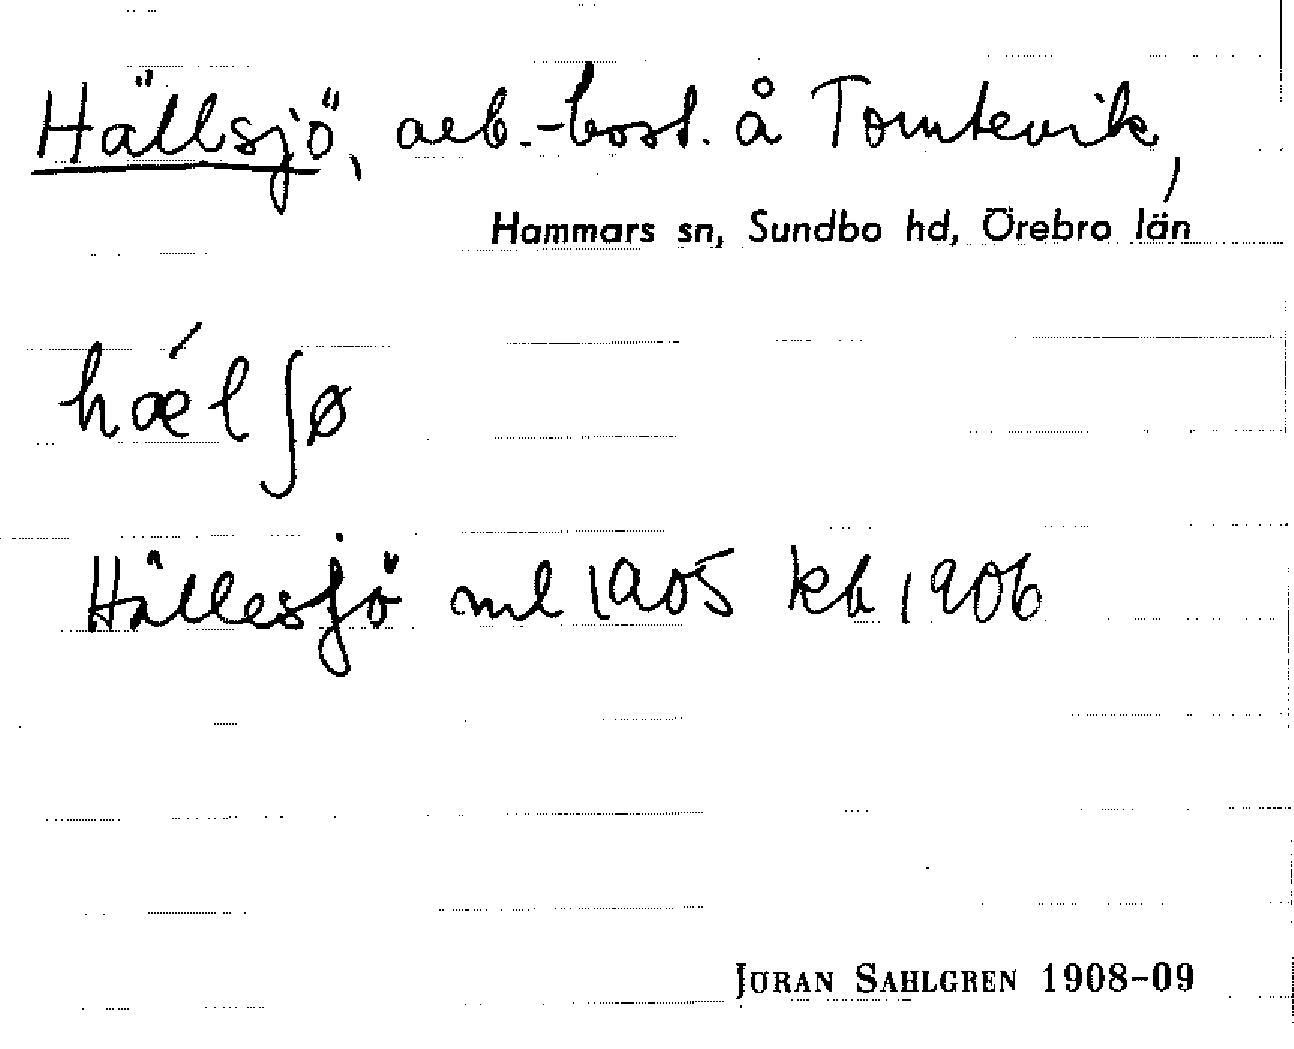 Hällsjö, arb.-bost. å Tomtevik,
Hammars sn, Sundbo hd, Örebro län
hǽlʃø
Hällesjö ml 1905 kb 1906
JÖRAN SAHLGREN 1908-09